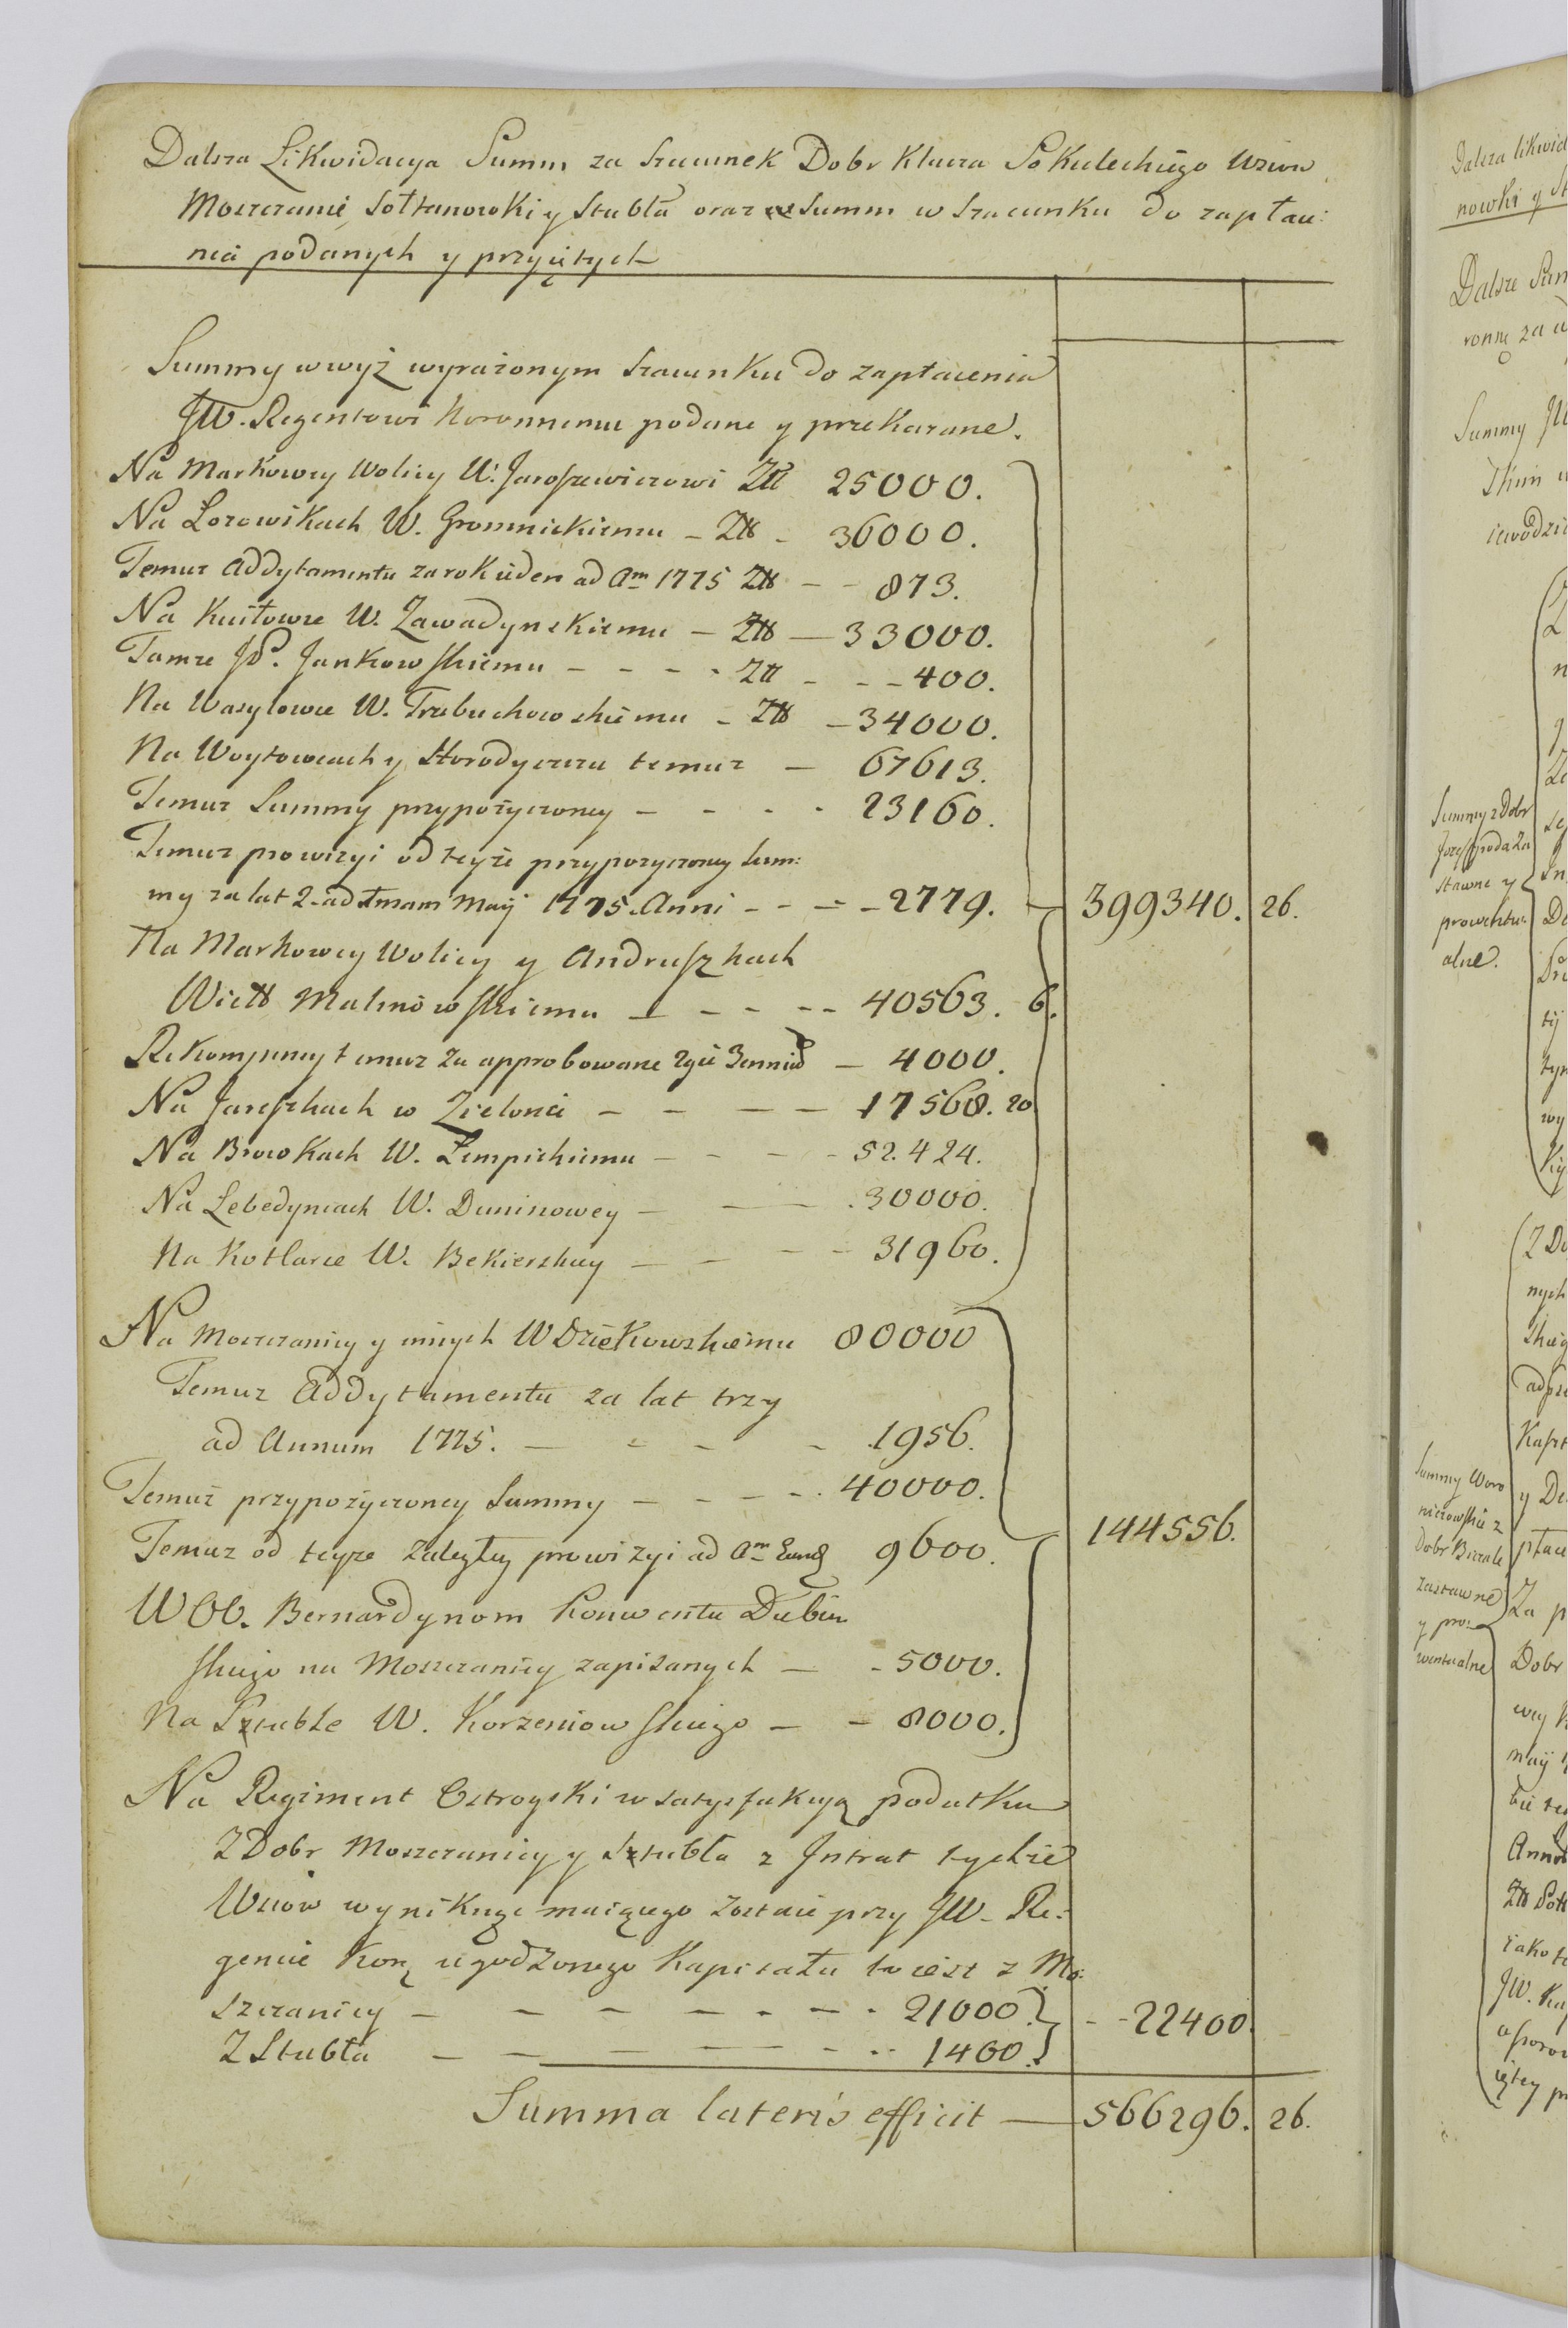 Dalsza Likwidacya Summ za Szacunek Dobr Klucza Sokuleckiego Wsiow
Moszczanic Sołtanowki y Stubła oraz Summ w Szacunku do zapłac:
nia podanych y przyiętych
Summy w wyż wyrażonym Szacunku do zapłacenia
JW. Regentowi Koronnemu podane y przekazane.
Na Markowey Wolicy W. Jaroszewiczowi Złł 25000.
Na Lozowikach W. Gromnickiemu - Złł - 36000.
Temuz Addytamentu za rok ieden ad Am 1775 Złł - - 873.
Na Kuiłowce W. Zawadynskiemu - Złł - 33000.
Tamze JP. Jankowskiemu - - - - Złł - - - 400.
Na Wasylowce W. Trzbuchowskiemu - Złł - 34000.
Na Woytowcach y Horodyszczu temuz - 67613.
Temuz Summy przypożyczoney - - - - 23160.
Temuz prowizyi od teyże przypozyczoney Sum:
my za lat 2. ad 1mam Maij 1775. Anni - - - - 2779. - 399340. 26.
Na Markowey Wolicy y Andruszkach
Wielł Malinowskiemu - - - - - 40563. 6.
Rekompensy temuz za approbowane - 4000.
Na Jareszkach w Zielonce - - - - 17568. 20
Na Browkach W. Zempickiemu - - - - 52.424.
Na Lebedyncach W. Duninowey - - - 30000.
Na Kotlarce W. Bekierskiey - - - - 31960.
Na Moszczanicy y innych W Dziekowskiemu 80000
Temuz Addytamentu za lat trzy
ad Annum 1775. - - - - 1956.
Temuż przypożyczoney Summy - - - - 40000.
144556.
Temuz od teyze zaległey prowizyi ad Am Eund 9600.
WOO. Bernardynom Konwentu Dubien
skiego na Moszczanicy zapisanych - - 5000.
Na Sztuble W. Korzeniowskiego - - 8000.
Na Regiment Ostrogski w satysfakcyą podatku
Z Dobr Moszczanicy y Sztubła z Intrat tychże
Wsiow wyniknąc maiącego zostaie przy JW. Re:
gencie Kor. ugodzonego Kapitału to iest z Mo:
szczanicy - - - - - - - 21000. - - 22400.
Z Stubła - - - - - - - 1400.
Summa lateris efficit - 566296. 26.
Dalsza likwid
nowki y St
Dalsze Sum
ronnę za
Summy JW
Summy z Dobr
stawne y
prowentu:
alne.
Summy Woro
niczowskie z
Dobr
zastawne
y pro:
wentualne
Za p
Dobr
JW. Ka